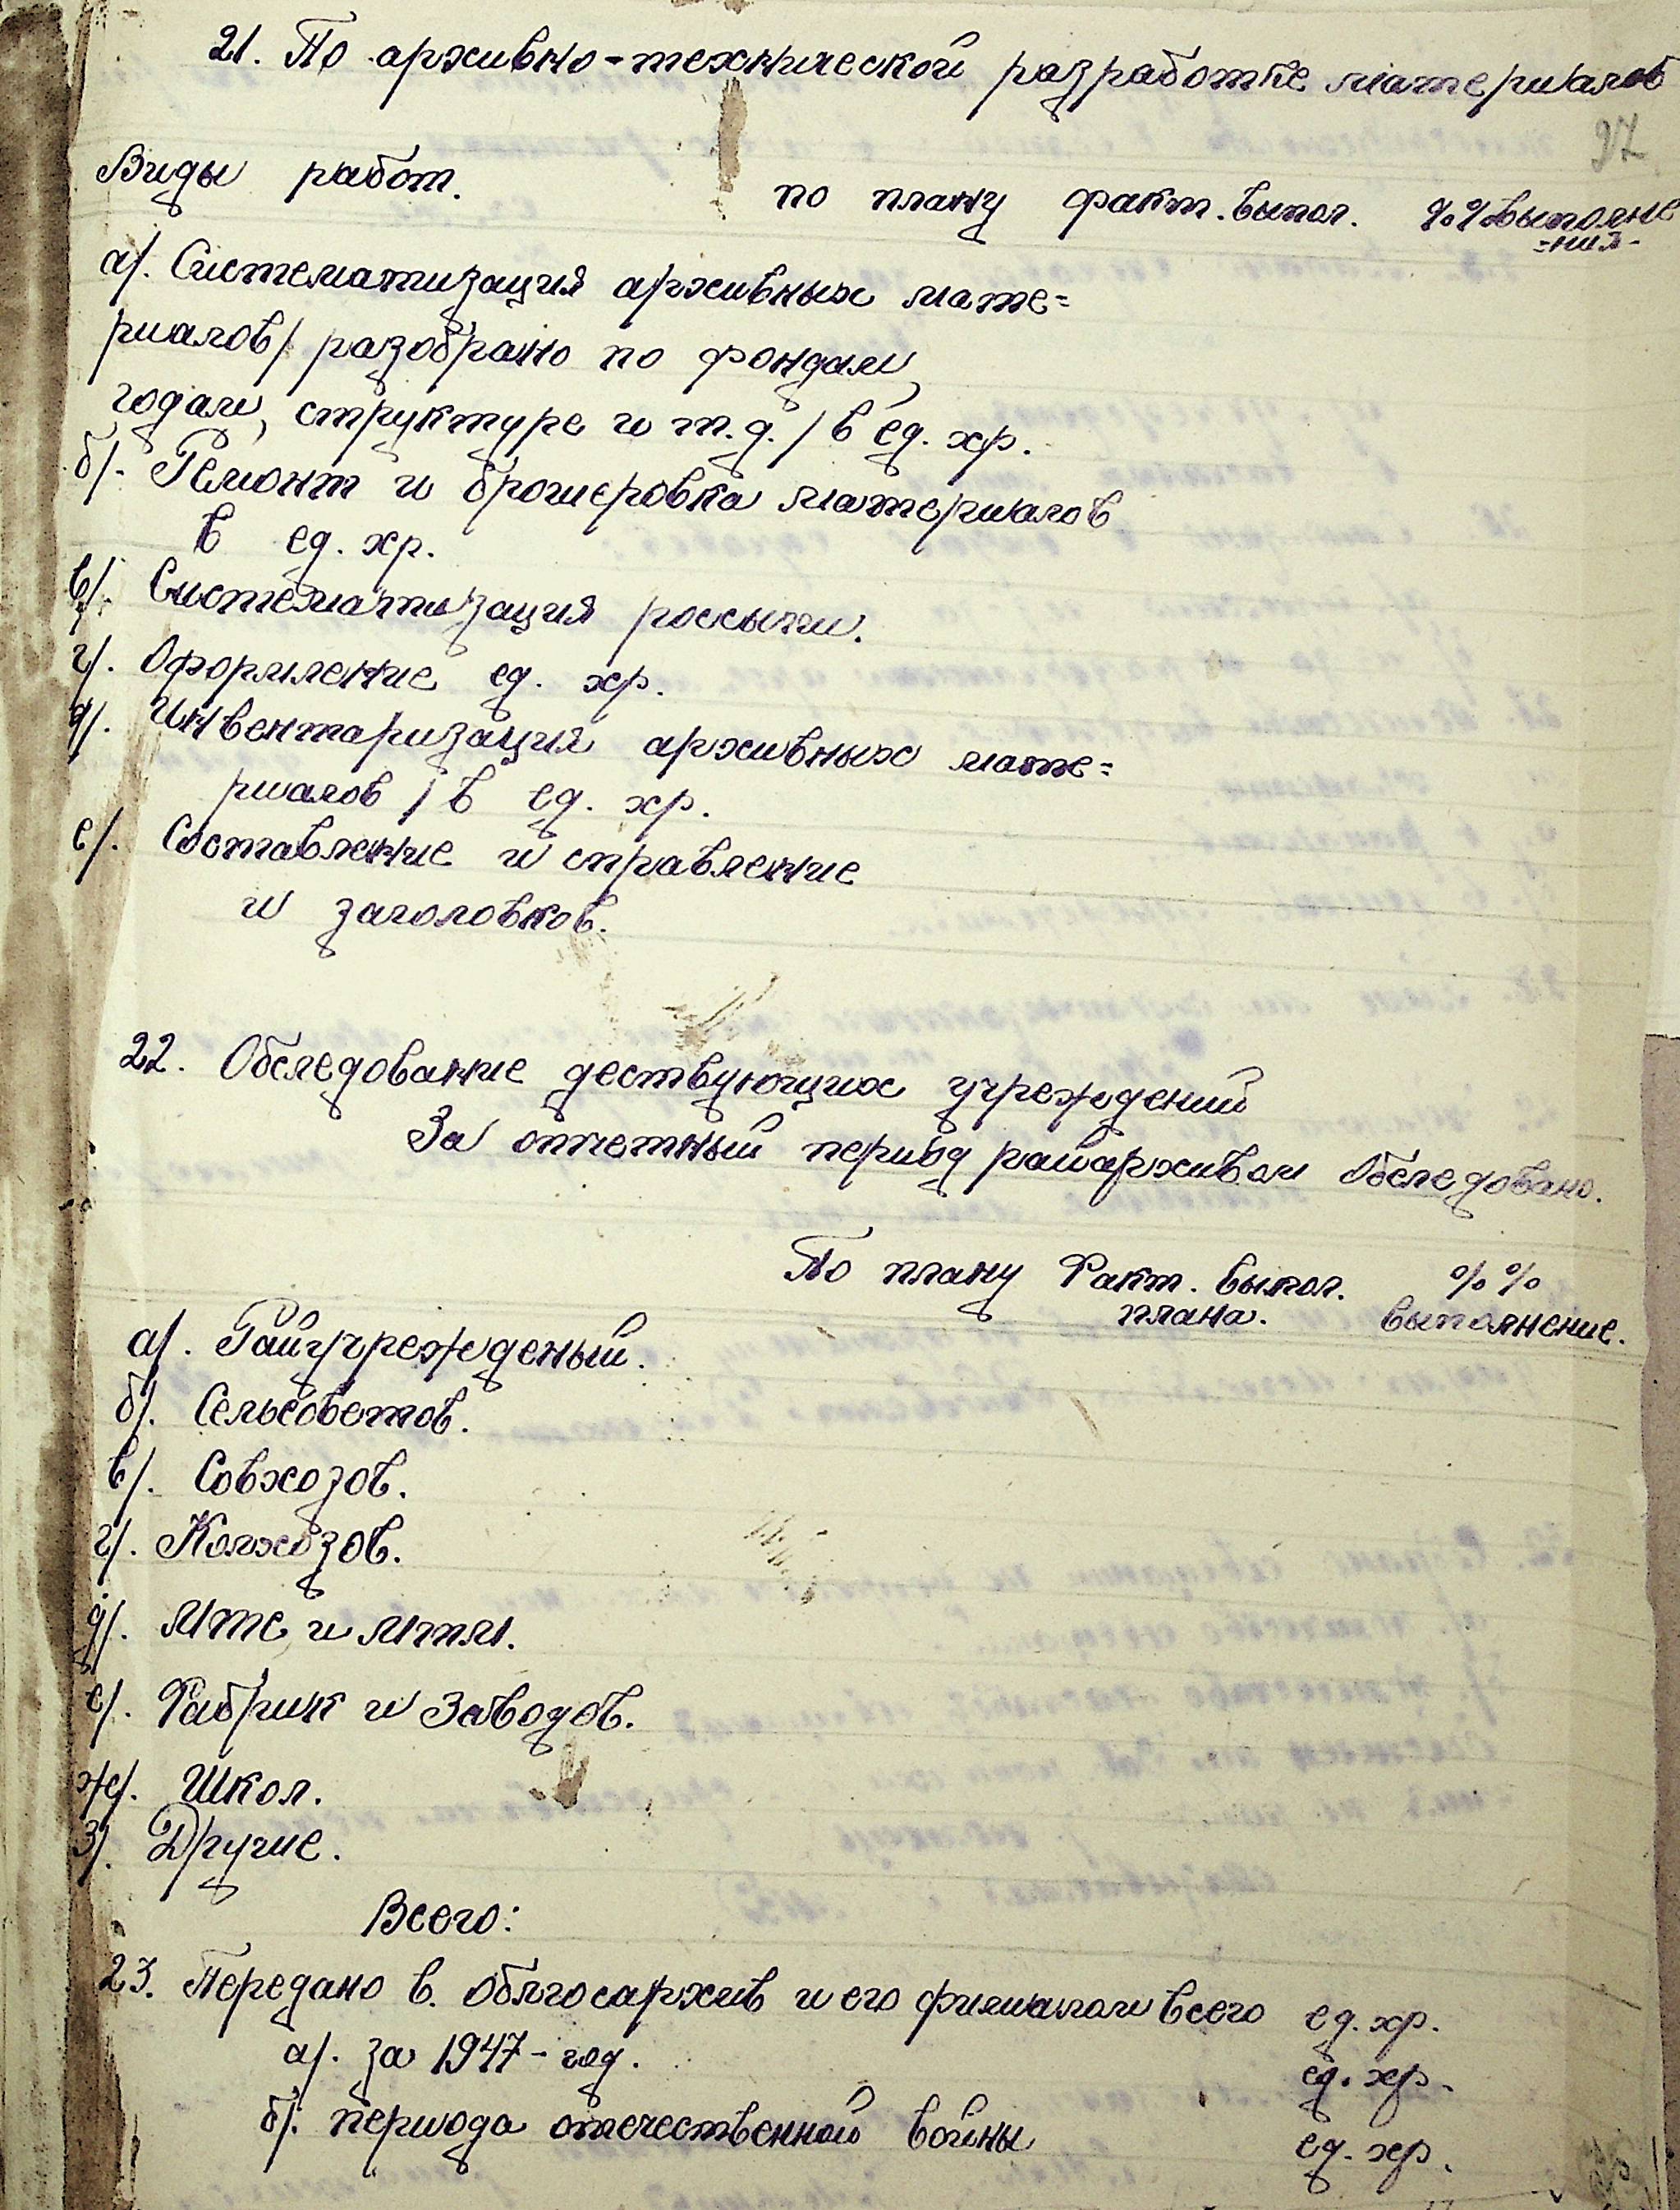 21. По архивно-технической разработке материалов
97
Виды работ. по плану факт. выпол. %% выполне
=ния-
а/. Систематизация архивных мате=
риалов/ разобрано по фондам,
годам, структуре и т.д. / в ед. хр.
б/. Ремонт и брошеровка материалов
в ед. хр.
в/. Систематизация россыпи.
г/. Оформление ед. хр.
д/. Инвентаризация архивных мате=
риалов / в ед. хр.
е/. Составление и справление
и заголовков.
22. Обследование дествующих учреждений
За отчетный период райархивом обследовано.
По плану Факт. выпол. %%
плана. выполнение.
а/. Райучрежденый.
б/. Сельсоветов.
в/. Совхозов.
г/. Колхозов.
д/. Мтс и Мтм.
е/. Фабрик и Заводов.
ж/. Школ.
з/. Другие.
Всего:
23. Передано в. облгосархив и его филиалом всего ед. хр.
а/. за 1947-год. ед. хр.
б/. периода отечественной войны ед. хр.